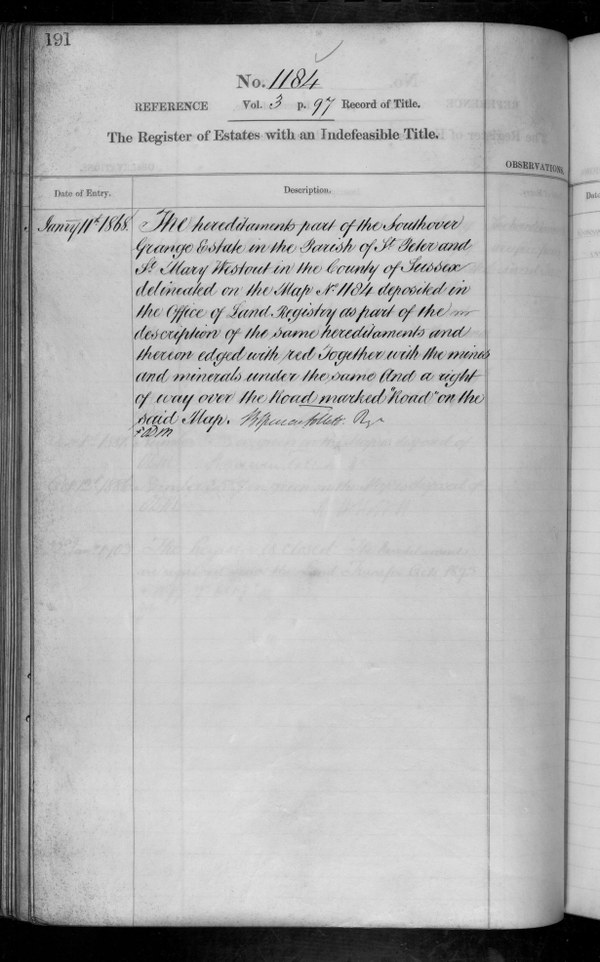 191
No. 1184
REFERENCE Vol. 3 p. 97 Record of Title.
The Register of Estates with an Indefeasible Title.
OBSERVATIONS.
Date of Entry.
Description.
Janry 11th 1868.
The hereditaments part of the Southover
Grange Estate in the Parish of St Peter and
St Mary Westout in the County of Sussex
delineated on the Map No 1184 deposited in
the Office of Land Registry as part of the
description of the same hereditaments and
thereon edged with red Together with the mines
and minerals under the same And a right
of way over the Road marked "Road" on the
said Map.